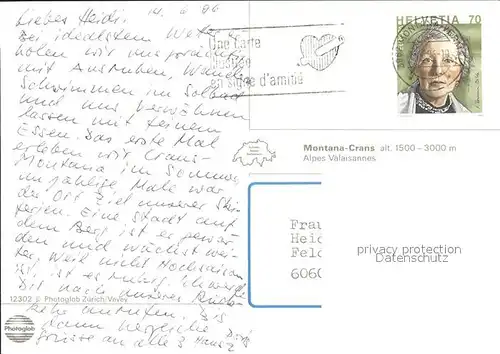 Lieber Heidi. 14. 6. 96
Bei idealstem Wetter
holen wir uns
mit Ausruhen, Wandern
Schwimmen im Solbad
und uns verwöhnen
lassen mit feinem
Essen. Das erste Mal
erleben wir Crans-
Montana im Sommer,
unzählige Male war
der Ort Ziel unserer Ski-
ferien. Eine Stadt auf
dem Berg ist es gewor-
den und wächst wei-
ter. Weil nicht Hochsaison
ist, ist es ruhig.
nach unserer Rück-
kehr anrufen. Bis
dann herzliche
Grüsse an alle
12302 © Photoglob Zürich/Vevey
Photoglob
Une carte
postale
en signe d'amitié
HELVETIA 70
Montana-Crans alt. 1500-3000 m
Alpes Valaisannes
Frau
Heid
Feld
6060
privacy protection
Datenschutz